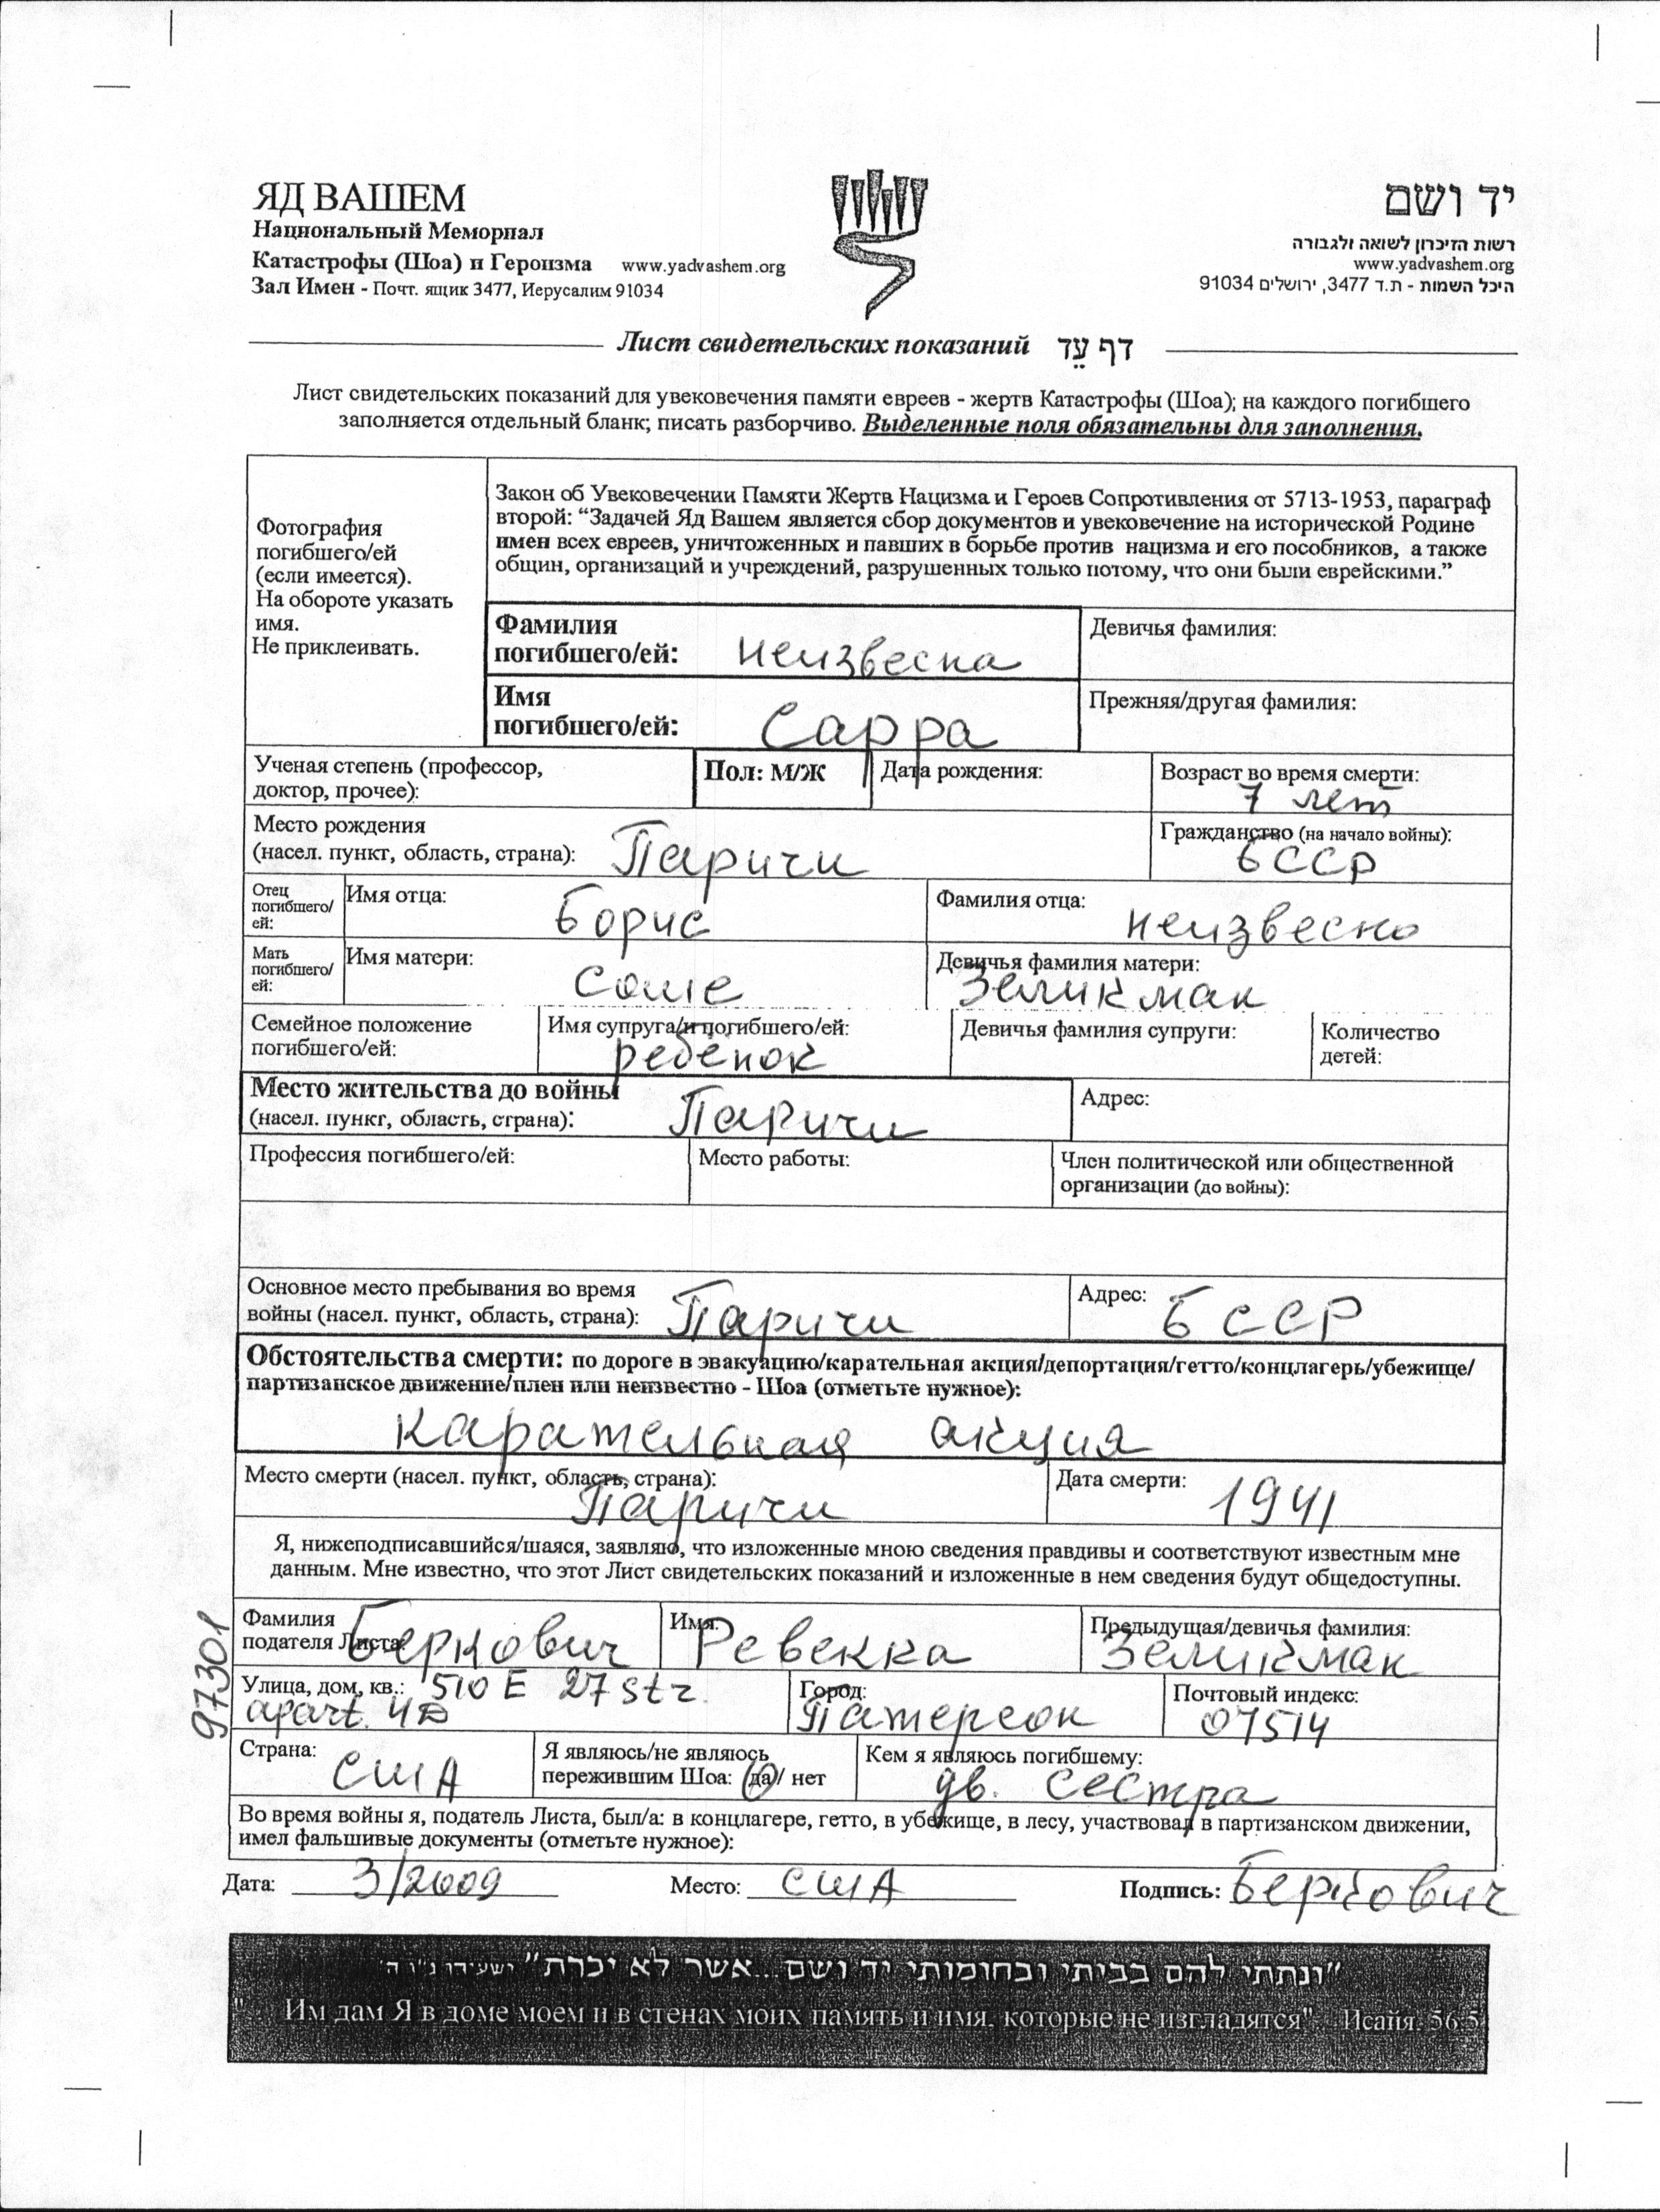 ЯД ВАШЕМ
Национальный Мемориал
Катастрофы (Шоа) и Героизма www.yadvashem.org
Зал Имен - Почт. ящик 3477, Иерусалим 91034
יד ושם
רשות הזיכרון לשואה ולגבורה
www.yadvashem.org
היכל השמות - ת.ד 3477, ירושלים 91034
Лист свидетельских показаний דף עֵד
Лист свидетельских показаний для увековечения памяти евреев - жертв Катастрофы (Шоа); на каждого погибшего
заполняется отдельный бланк; писать разборчиво. Выделенные поля обязательны для заполнения.
Фотография
погибшего/ей
(если имеется).
На обороте указать
имя.
Не приклеивать.
Закон об Увековечении Памяти Жертв Нацизма и Героев Сопротивления от 5713-1953, параграф
второй: “Задачей Яд Вашем является сбор документов и увековечение на исторической Родине
имен всех евреев, уничтоженных и павших в борьбе против нацизма и его пособников, а также
общин, организаций и учреждений, разрушенных только потому, что они были еврейскими.”
Фамилия
погибшего/ей: неизвесна
Девичья фамилия:
Имя
погибшего/ей: Сарра
Прежняя/другая фамилия:
Ученая степень (профессор,
доктор, прочее):
Пол: М/Ж
Дата рождения:
Возраст во время смерти:
7 лет
Место рождения
(насел. пункт, область, страна): Паричи
Гражданство (на начало войны):
БССР
Отец
погибшего/
ей:
Имя отца: Борис
Фамилия отца: неизвесно
Мать
погибшего/
ей:
Имя матери: Соше
Девичья фамилия матери:
Зеликман
Семейное положение
погибшего/ей:
Имя супруга/и погибшего/ей:
ребёнок
Девичья фамилия супруги:
Количество
детей:
Место жительства до войны
(насел. пункт, область, страна): Паричи
Адрес:
Профессия погибшего/ей:
Место работы:
Член политической или общественной
организации (до войны):
Основное место пребывания во время
войны (насел. пункт, область, страна): Паричи
Адрес: БССР
Обстоятельства смерти: по дороге в эвакуацию/карательная акция/депортация/гетто/концлагерь/убежище/
партизанское движение/плен или неизвестно - Шоа (отметьте нужное):
карательная акция
Место смерти (насел. пункт, область, страна):
Паричи
Дата смерти: 1941
Я, нижеподписавшийся/шаяся, заявляю, что изложенные мною сведения правдивы и соответствуют известным мне
данным. Мне известно, что этот Лист свидетельских показаний и изложенные в нем сведения будут общедоступны.
97301
Фамилия
подателя Листа: Беркович
Имя: Ревекка
Предыдущая/девичья фамилия:
Зеликман
Улица, дом, кв.: 510 E 27 str.
apart. 4D
Город:
Патерсон
Почтовый индекс:
07514
Страна: США
Я являюсь/не являюсь
пережившим Шоа: да/ нет
Кем я являюсь погибшему:
дв. сестра
Во время войны я, податель Листа, был/а: в концлагере, гетто, в убежище, в лесу, участвовал в партизанском движении,
имел фальшивые документы (отметьте нужное):
Дата: 3/2009 Место: США Подпись: Беркович
"ונתתי להם בביתי ובחומותי יד ושם...אשר לא יכרת" ישעיהו נ"ו ה'
"... Им дам Я в доме моем и в стенах моих память и имя, которые не изгладятся". Исайя. 56:5